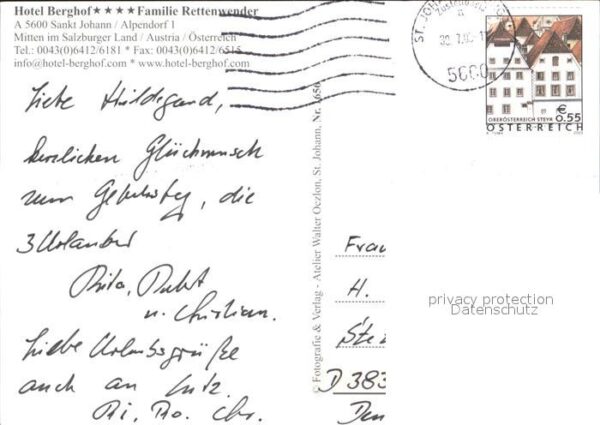 Hotel Berghof★★★★Familie Rettenwender
A 5600 Sankt Johann / Alpendorf 1
Mitten im Salzburger Land / Austria / Österreich
Tel.: 0043(0)6412/6181 * Fax: 0043(0)6412/6515
info@hotel-berghof.com * www.hotel-berghof.com
Liebe Hildegard,
herzlichen Glückwunsch
zum Geburtstag, die
3 Urlauber
Rita,
u. Christian.
Liebe Urlaubsgrüße
auch an Lutz.
Ri, Ro, Chr.
© Fotografie & Verlag - Atelier Walter Oczlon, St. Johann, Nr.
ST. JOH
5600
€
0.55
OBERÖSTERREICH STEYR
ÖSTERREICH
Frau
H.
Ste
D 383
privacy protection
Datenschutz